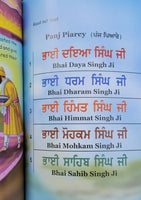 Panj Piarey (ਪੰਜ ਪਿਆਰੇ)
1 ਭਾਈ ਦਇਆ ਸਿੰਘ ਜੀ
Bhai Daya Singh Ji
2 ਭਾਈ ਧਰਮ ਸਿੰਘ ਜੀ
Bhai Dharam Singh Ji
3 ਭਾਈ ਹਿੰਮਤ ਸਿੰਘ ਜੀ
Bhai Himmat Singh Ji
4 ਭਾਈ ਮੋਹਕਮ ਸਿੰਘ ਜੀ
Bhai Mohkam Singh Ji
5 ਭਾਈ ਸਾਹਿਬ ਸਿੰਘ ਜੀ
Bhai Sahib Singh Ji